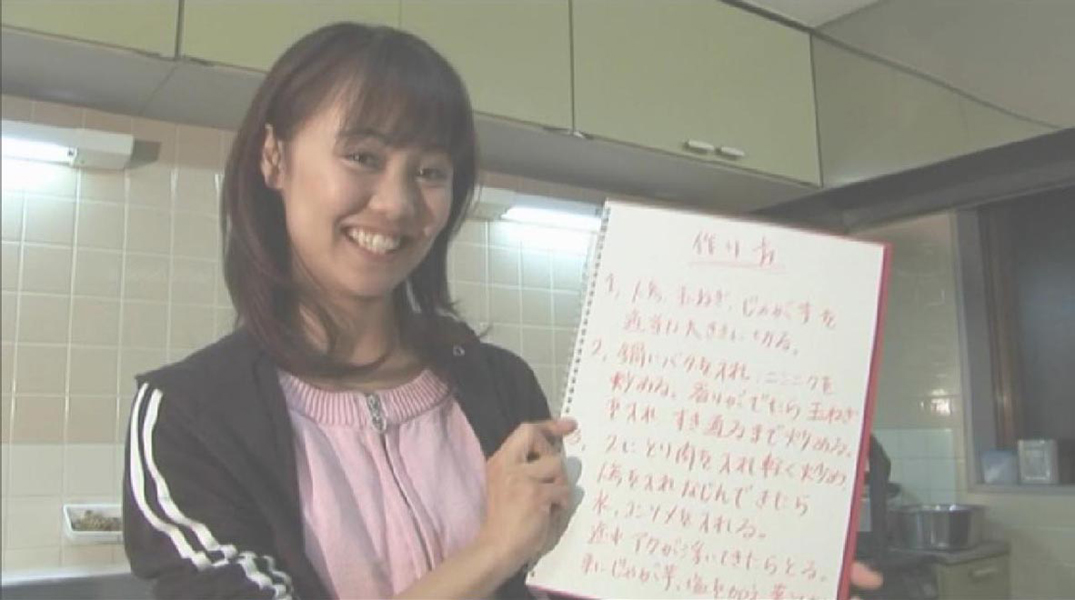 作り方
1. 人参、玉ねぎ、じゃが芋を
適当な大きさに切る。
2. 鍋にバターを入れ、ニンニクを
炒める。香りがでたら玉ねぎ
を入れ すき通るまで炒める。
3. 2にとり肉を入れ軽く炒め
人参を入れなじんできたら
水、コンソメを入れる。
途中アクが浮いてきたらとる。
じゃが芋、塩を加え